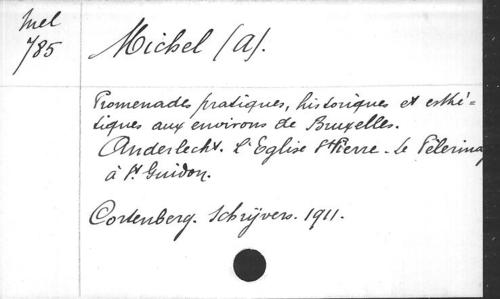 Mel
785
Michel (A).
Promenades pratiques, historiques et esthé=
tiques aux environs de Bruxelles.
Anderlecht. L'Eglise St Pierre - Le Pélerinag
à St Guidon.
Cortenberg. Schrÿvers. 1911.